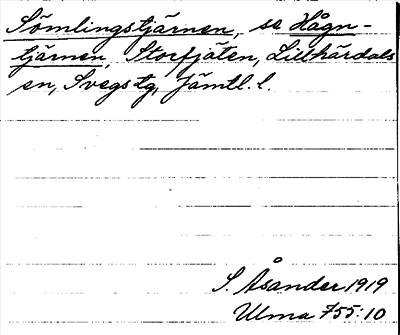 Sömlingstjärnen, se Hågn-
tjärnen, Storfjäten, Lillhärdals
sn, Svegs tg, Jämtl. l.
S. Åsander 1919
Ulma 755:10